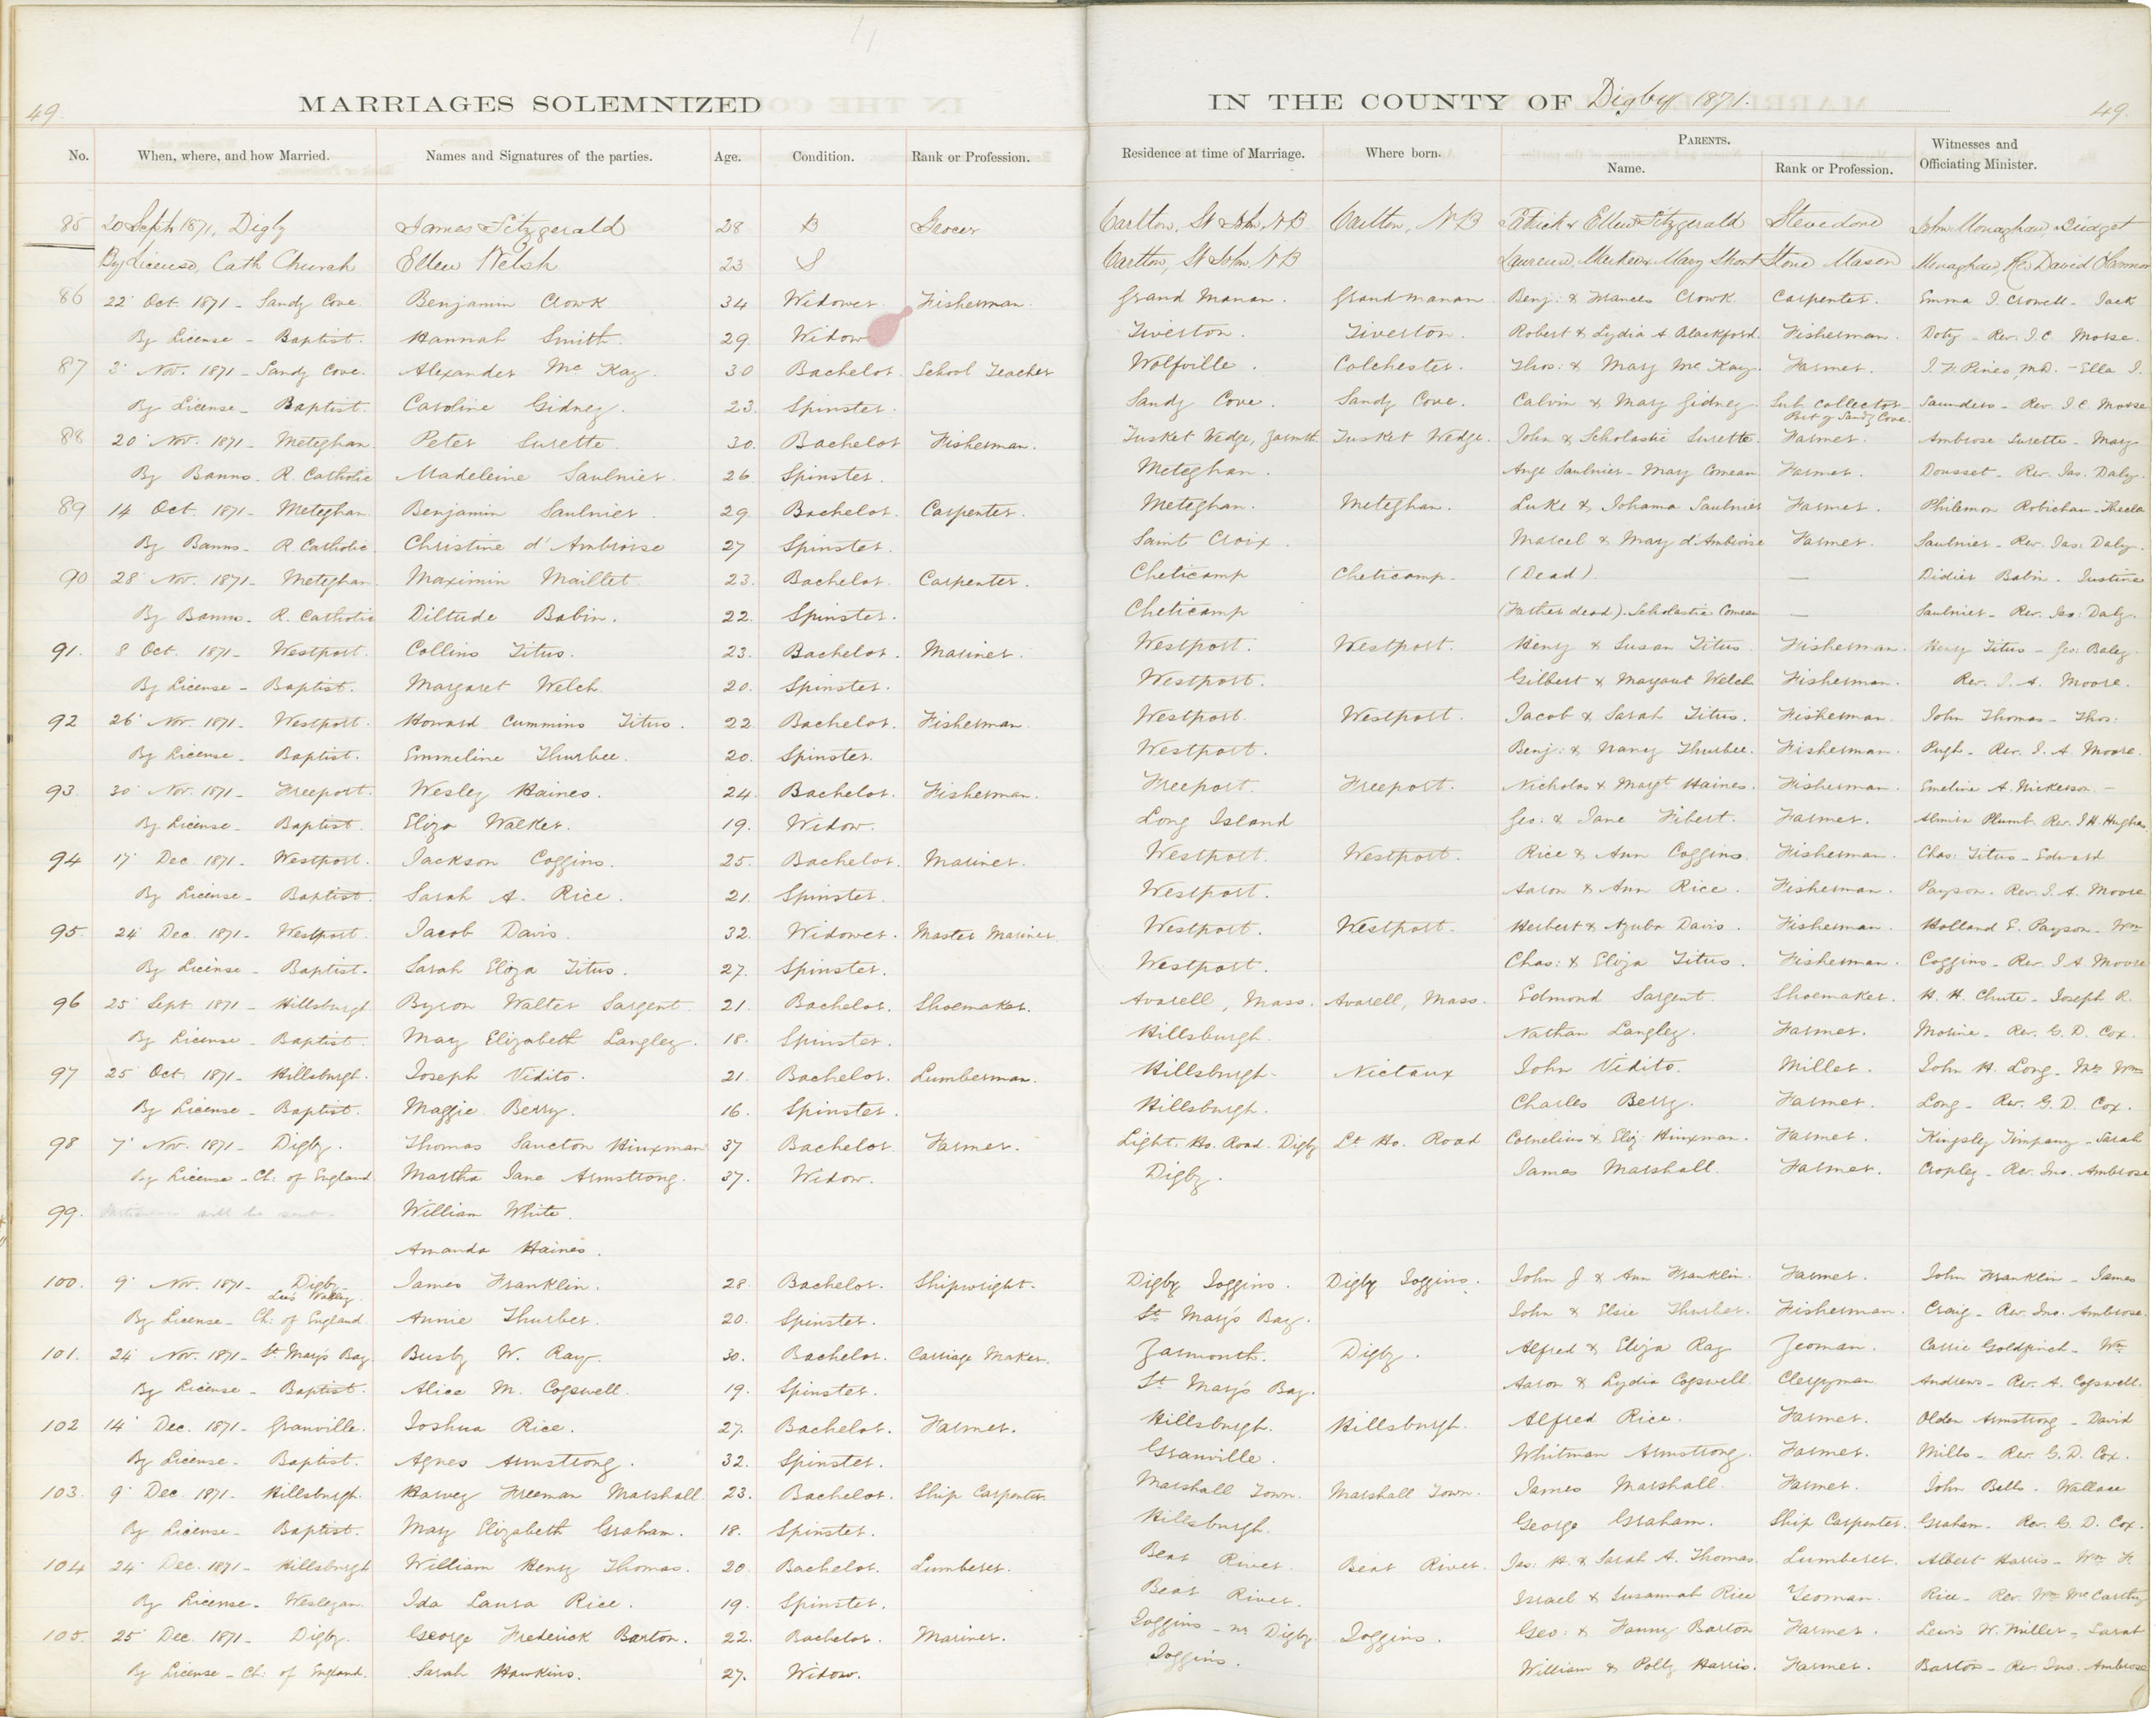 49.
MARRIAGES SOLEMNIZED
IN THE COUNTY OF Digby 1871.
49.
No. When, where, and how Married. Names and Signatures of the parties. Age. Condition. Rank or Profession. Residence at time of Marriage. Where born. PARENTS. Name. Rank or Profession. Witnesses and Officiating Minister.
85 20 Sept 1871, Digby James Fitzgerald 28 B Grocer Carlton, St John, NB Carlton, NB Patrick & Ellen Fitzgerald Stevedore John Monaghan, Bridget
By License, Cath Church Ellen Welsh 23 S Carlton, St John, NB Laurence, Mary Short Stone Mason Monaghan, Rev David O'Connor
86 22 Oct. 1871 - Sandy Cove. Benjamin Crowk 34 Widower Fisherman. Grand Manan. Grand manan Benj: & Frances Crowk Carpenter. Emma J. Crowell - Jack
By License - Baptist. Hannah Smith. 29. Widow Tiverton. Tiverton. Robert & Lydia A. Blackford. Fisherman. Doty - Rev. J.C. Morse.
87 3 Nov. 1871 - Sandy Cove. Alexander McKay. 30 Bachelor School Teacher Wolfville. Colchester. Thos: & Mary McKay. Farmer. J. F. Pines, M.D. - Ella J.
By License - Baptist. Caroline Gidney. 23. Spinster. Sandy Cove. Sandy Cove. Calvin & Mary Gidney. Sub Collector - Port of Sandy Cove. Saunders - Rev. J.C. Morse
88 20 Nov. 1871 - Meteghan. Peter Surette. 30. Bachelor Fisherman. Tusket Wedge, Yarmth Tusket Wedge. John & Scholastic Surette. Farmer. Ambrose Surette - Mary
By Banns - R. Catholic Madeleine Saulnier. 26 Spinster. Meteghan. Ange Saulnier - Mary Comeau Farmer. Dousset - Rev. Jas. Daly.
89 14 Oct. 1871 - Meteghan. Benjamin Saulnier. 29. Bachelor. Carpenter. Meteghan. Meteghan. Luke & Johanna Saulnier Farmer. Philemon Robichau - Thecla
By Banns - R. Catholic. Christine d'Ambroise 27 Spinster. Saint Croix. Marcel & Mary d'Ambroise Farmer. Saulnier - Rev. Jas: Daly.
90 28 Nov. 1871 - Meteghan Maximin Maillet. 23. Bachelor. Carpenter. Cheticamp Cheticamp. (Dead). — Didier Babin. Justine
By Banns - R. Catholic Diltude Babin. 22. Spinster. Cheticamp (Father dead). Scholastic Comeau — Saulnier - Rev. Jas: Daly.
91. 8 Oct. 1871 - Westport. Collins Titus. 23. Bachelor. Mariner. Westport. Westport. Henry & Susan Titus Fisherman. Henry Titus - Geo: Baley.
By License - Baptist. Margaret Welch. 20. Spinster. Westport. Gilbert & Margaret Welch Fisherman. Rev. J. A. Moore.
92 26 Nov. 1871 - Westport. Howard Cummins Titus. 22. Bachelor. Fisherman. Westport. Westport. Jacob & Sarah Titus. Fisherman. John Thomas - Thos:
By License - Baptist. Emmeline Thurbee. 20. Spinster. Westport. Benj: & Nancy Thurbee. Fisherman. Pugh - Rev. J. A. Moore.
93. 30 Nov. 1871 - Freeport. Wesley Haines. 24. Bachelor. Fisherman. Freeport. Freeport. Nicholas & Margt Haines. Fisherman. Emeline A. Nickerson -
By License - Baptist. Eliza Walker. 19. Widow. Long Island Geo: & Jane Fibert. Farmer. Almira Plumb. Rev. J.H. Hughes.
94 17 Dec. 1871 - Westport. Jackson Coggins. 25. Bachelor. Mariner. Westport. Westport. Rice & Ann Coggins. Fisherman. Chas: Titus - Edward
By License - Baptist. Sarah A. Rice. 21. Spinster. Westport. Aaron & Ann Rice. Fisherman. Payson. Rev. J. A. Moore
95. 24 Dec. 1871 - Westport. Jacob Davis. 32. Widower. Master Mariner. Westport. Westport. Herbert & Azuba Davis. Fisherman. Holland E. Payson - Wm
By License - Baptist. Sarah Eliza Titus. 27. Spinster. Westport. Chas: & Eliza Titus. Fisherman. Coggins - Rev. J. A. Moore
96 25 Sept. 1871 - Hillsburgh Byron Walter Sargent. 21. Bachelor. Shoemaker. Avarell, Mass. Avarell, Mass. Edmond Sargent. Shoemaker. H. H. Chute - Joseph R.
By License - Baptist. Mary Elizabeth Langley. 18. Spinster. Hillsburgh. Nathan Langley. Farmer. Morine - Rev. G. D. Cox.
97 25 Oct. 1871 - Hillsburgh. Joseph Vidito. 21. Bachelor. Lumberman. Hillsburgh. Nictaux John Vidito. Miller. John H. Long - Mrs Wm
By License - Baptist. Maggie Berry. 16. Spinster. Hillsburgh. Charles Berry. Farmer. Long - Rev. G. D. Cox.
98 7 Nov. 1871 - Digby. Thomas Sancton Hinxman 37 Bachelor Farmer. Light. Ho. Road. Digby Lt. Ho. Road Cornelius & Eliz Hinxman. Farmer. Kingsley Timpany - Sarah
By License - Ch: of England Martha Jane Armstrong. 37. Widow. Digby. James Marshall. Farmer. Cropley - Rev. Jno. Ambrose
99. will be sent. William White.
Amanda Haines.
100. 9 Nov. 1871 - Digby. James Franklin. 28. Bachelor. Shipwright. Digby Joggins. Digby Joggins. John J & Ann Franklin. Farmer. John Franklin - James
By License - Ch: of England. Annie Thurber. 20. Spinster. St Mary's Bay. John & Elsie Thurber. Fisherman. Craig - Rev. Jno. Ambrose.
101. 24 Nov. 1871 - St Mary's Bay Busby W. Ray. 30. Bachelor. Carriage Maker. Yarmouth. Digby. Alfred & Eliza Ray Yeoman. Cassie Goldfinch - Wm
By License - Baptist. Alice M. Cogswell. 19. Spinster. St Mary's Bay. Aaron & Lydia Cogswell. Clergyman Andrews - Rev. A. Cogswell.
102 14 Dec. 1871 - Granville. Joshua Rice. 27. Bachelor. Farmer. Hillsburgh. Hillsburgh. Alfred Rice. Farmer. Olden Armstrong - David
By License - Baptist. Agnes Armstrong. 32. Spinster. Granville. Whitman Armstrong. Farmer. Mills - Rev. G. D. Cox.
103. 9 Dec. 1871 - Hillsburgh. Harvey Freeman Marshall. 23. Bachelor. Ship Carpenter. Marshall Town. Marshall Town. James Marshall. Farmer. John Bells. Wallace
By License - Baptist. Mary Elizabeth Graham. 18. Spinster. Hillsburgh. George Graham. Ship Carpenter. Graham - Rev. G. D. Cox.
104 24 Dec. 1871 - Hillsburgh William Henry Thomas. 20 Bachelor. Lumberer. Bear River. Bear River. Jas: H. & Sarah A. Thomas Lumberer. Albert Harris - Wm H.
By License - Wesleyan. Ida Laura Rice. 19. Spinster. Bear River. Israel & Susannah Rice Yeoman. Rice - Rev. Wm McCarthy
105. 25 Dec. 1871 - Digby. George Frederick Barton. 22. Bachelor. Mariner. Joggins - nr Digby. Joggins. Geo: & Fanny Barton Farmer. Lewis W. Miller - Sarah
By License - Ch: of England. Sarah Hawkins. 27. Widow. Joggins. William & Polly Harris. Farmer. Barton - Rev. Jno. Ambrose